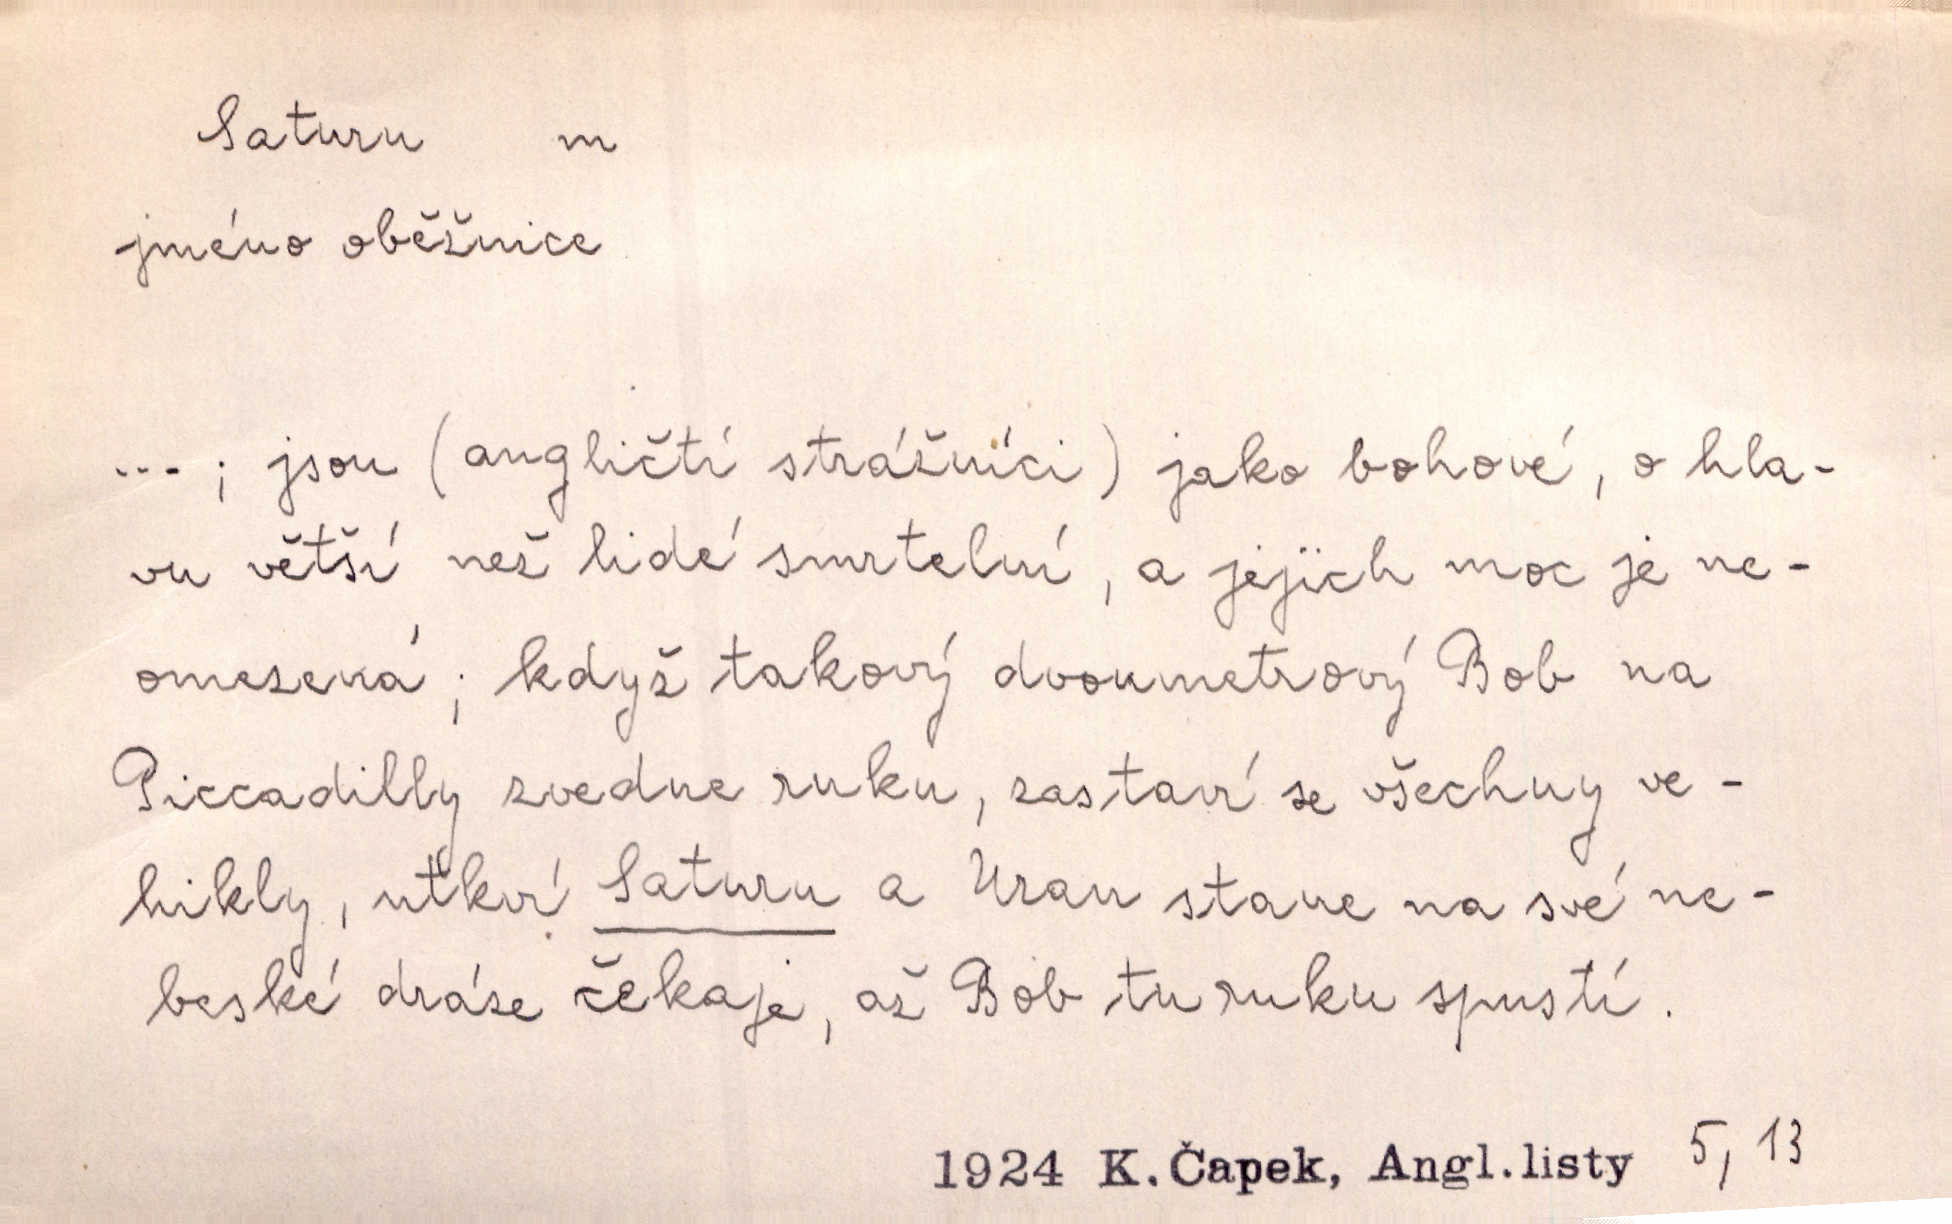 Saturn m
jméno oběžnice
...; jsou (angličtí strážníci) jako bohové, o hla-
vu větší než lidé smrtelní, a jejich moc je ne-
omezená; když takový dvoumetrový Bob na
Piccadilly zvedne ruku, zastaví se všechny ve-
hikly, utkví Saturn a Uran stane na své ne-
beské dráze čekaje, až Bob tu ruku spustí.
1924 K. Čapek, Angl. listy 5, 13